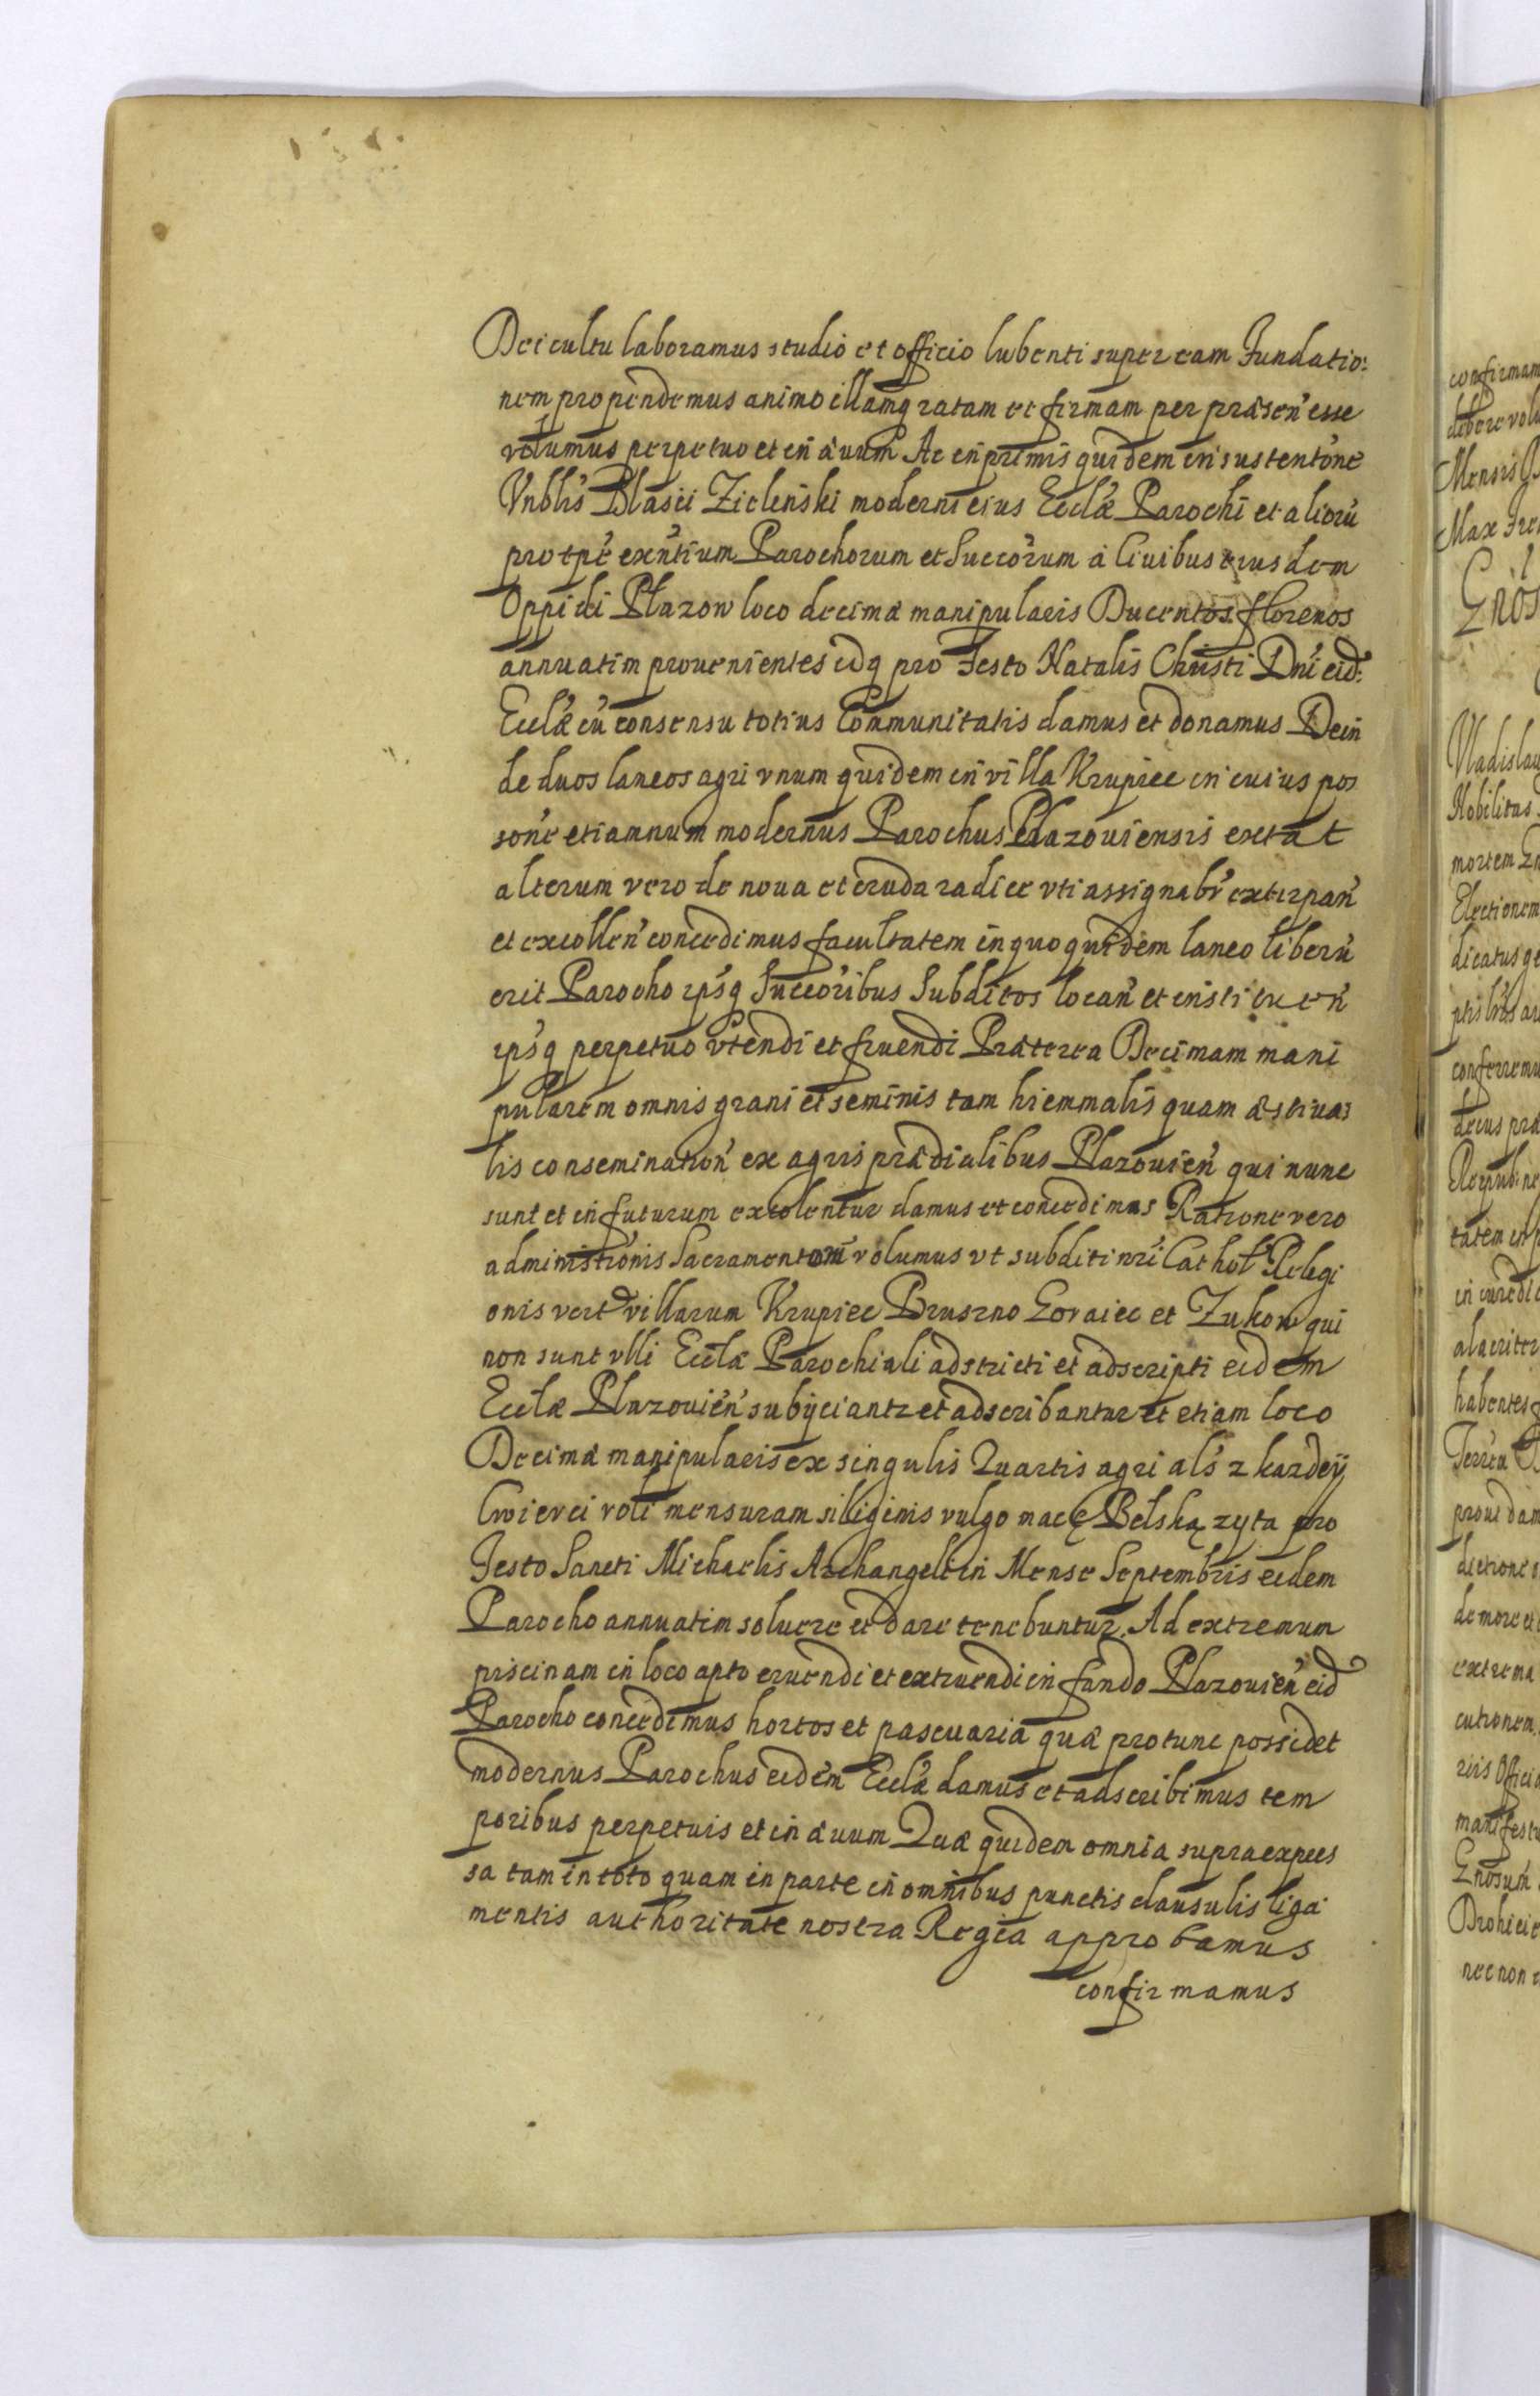 Dei cultu laboramus studio et officio lubenti super eam Fundatio:
nem propendemus animo illamq ratam et firmam per præsen' esse
volumus perpetuo et in ævum Ac inprimis quidem in sustent'one
Vnblis Blasii Zielenski moderni eius Eccl'æ Parochi et alioru'
pro tp'e exn'tium Parochorum et Succo'rum a Ciuibus eiusdem
Oppidi Płazow loco decimæ manipularis Ducentos florenos
annuatim prouenientes idq pro Festo Natalis Christi Dn'i eid:
Eccl'æ cu' consensu totius Communitatis damus et donamus Dein
de duos laneos agri vnum quidem in villa Krupiec in cuius pos
son'e etiamnum modernus Parochus Płazouiensis extat
alterum vero de noua et cruda radice vti assignabr' extirpan'
et excollen' concedimus facultatem in quo quidem laneo liberu'
erit Parocho ips'q Succo'ribus Subditos locan' et instituen'
ips'q perpetuo vtendi et fruendi Præterea Decimam mani
pularem omnis grani et seminis tam hiemmalis quam æstiua:
lis consemination' ex agris prædialibus Płazouien' qui nunc
sunt et in futurum excolentur damus et concedimus Ratione vero
administr'onis Sacramentoru' volumus vt subditi nr'i Cathol' Religi
onis vert villarum Krupiec Bruszno Goraiec et Zukow qui
non sunt vlli Eccl'æ Parochiali adstricti et adscripti eidem
Eccl'æ Płazouien' subijciantr et adscribantur et etiam loco
Decimæ manipularis ex singulis Quartis agri als' z kazdey
Cwierci roli mensuram siliginis vulgo macę Bełską zyta pro
Festo Sancti Michaelis Archangeli in Mense Septembris eidem
Parocho annuatim soluere et dare tenebuntur. Ad extremum
piscinam in loco apto eruendi et extruendi in fundo Płazouien' eid
Parocho concedimus hortos et pascuaria quæ protunc possidet
modernus Parochus eidem Eccl'æ damus et adscribimus tem
poribus perpetuis et in ævum Quæ quidem omnia supraexpres
sa tam in toto quam in parte in omnibus punctis clausulis liga
mentis authoritate nostra Regia approbamus
confirmamus